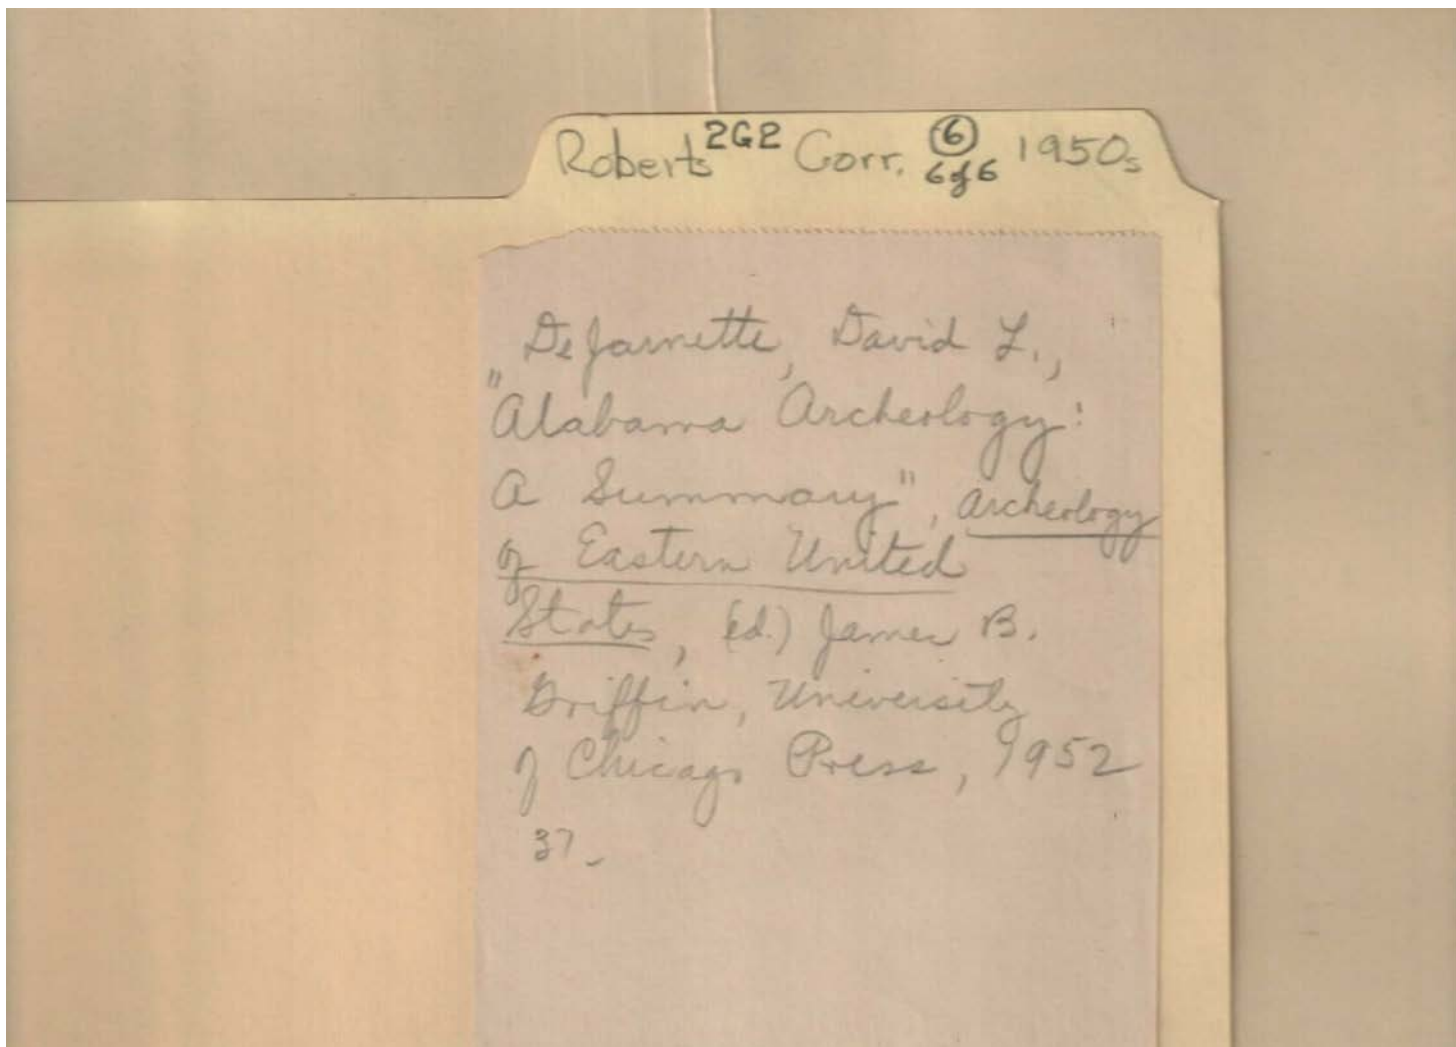 Roberts 2G2 Corr. 6 1950s
6 of 6
DeJarnette, David L.,
"Alabama Archeology:
A Summary", Archeology
of Eastern United
States, (ed.) James B.
Griffin, University
of Chicago Press, 1952
37-